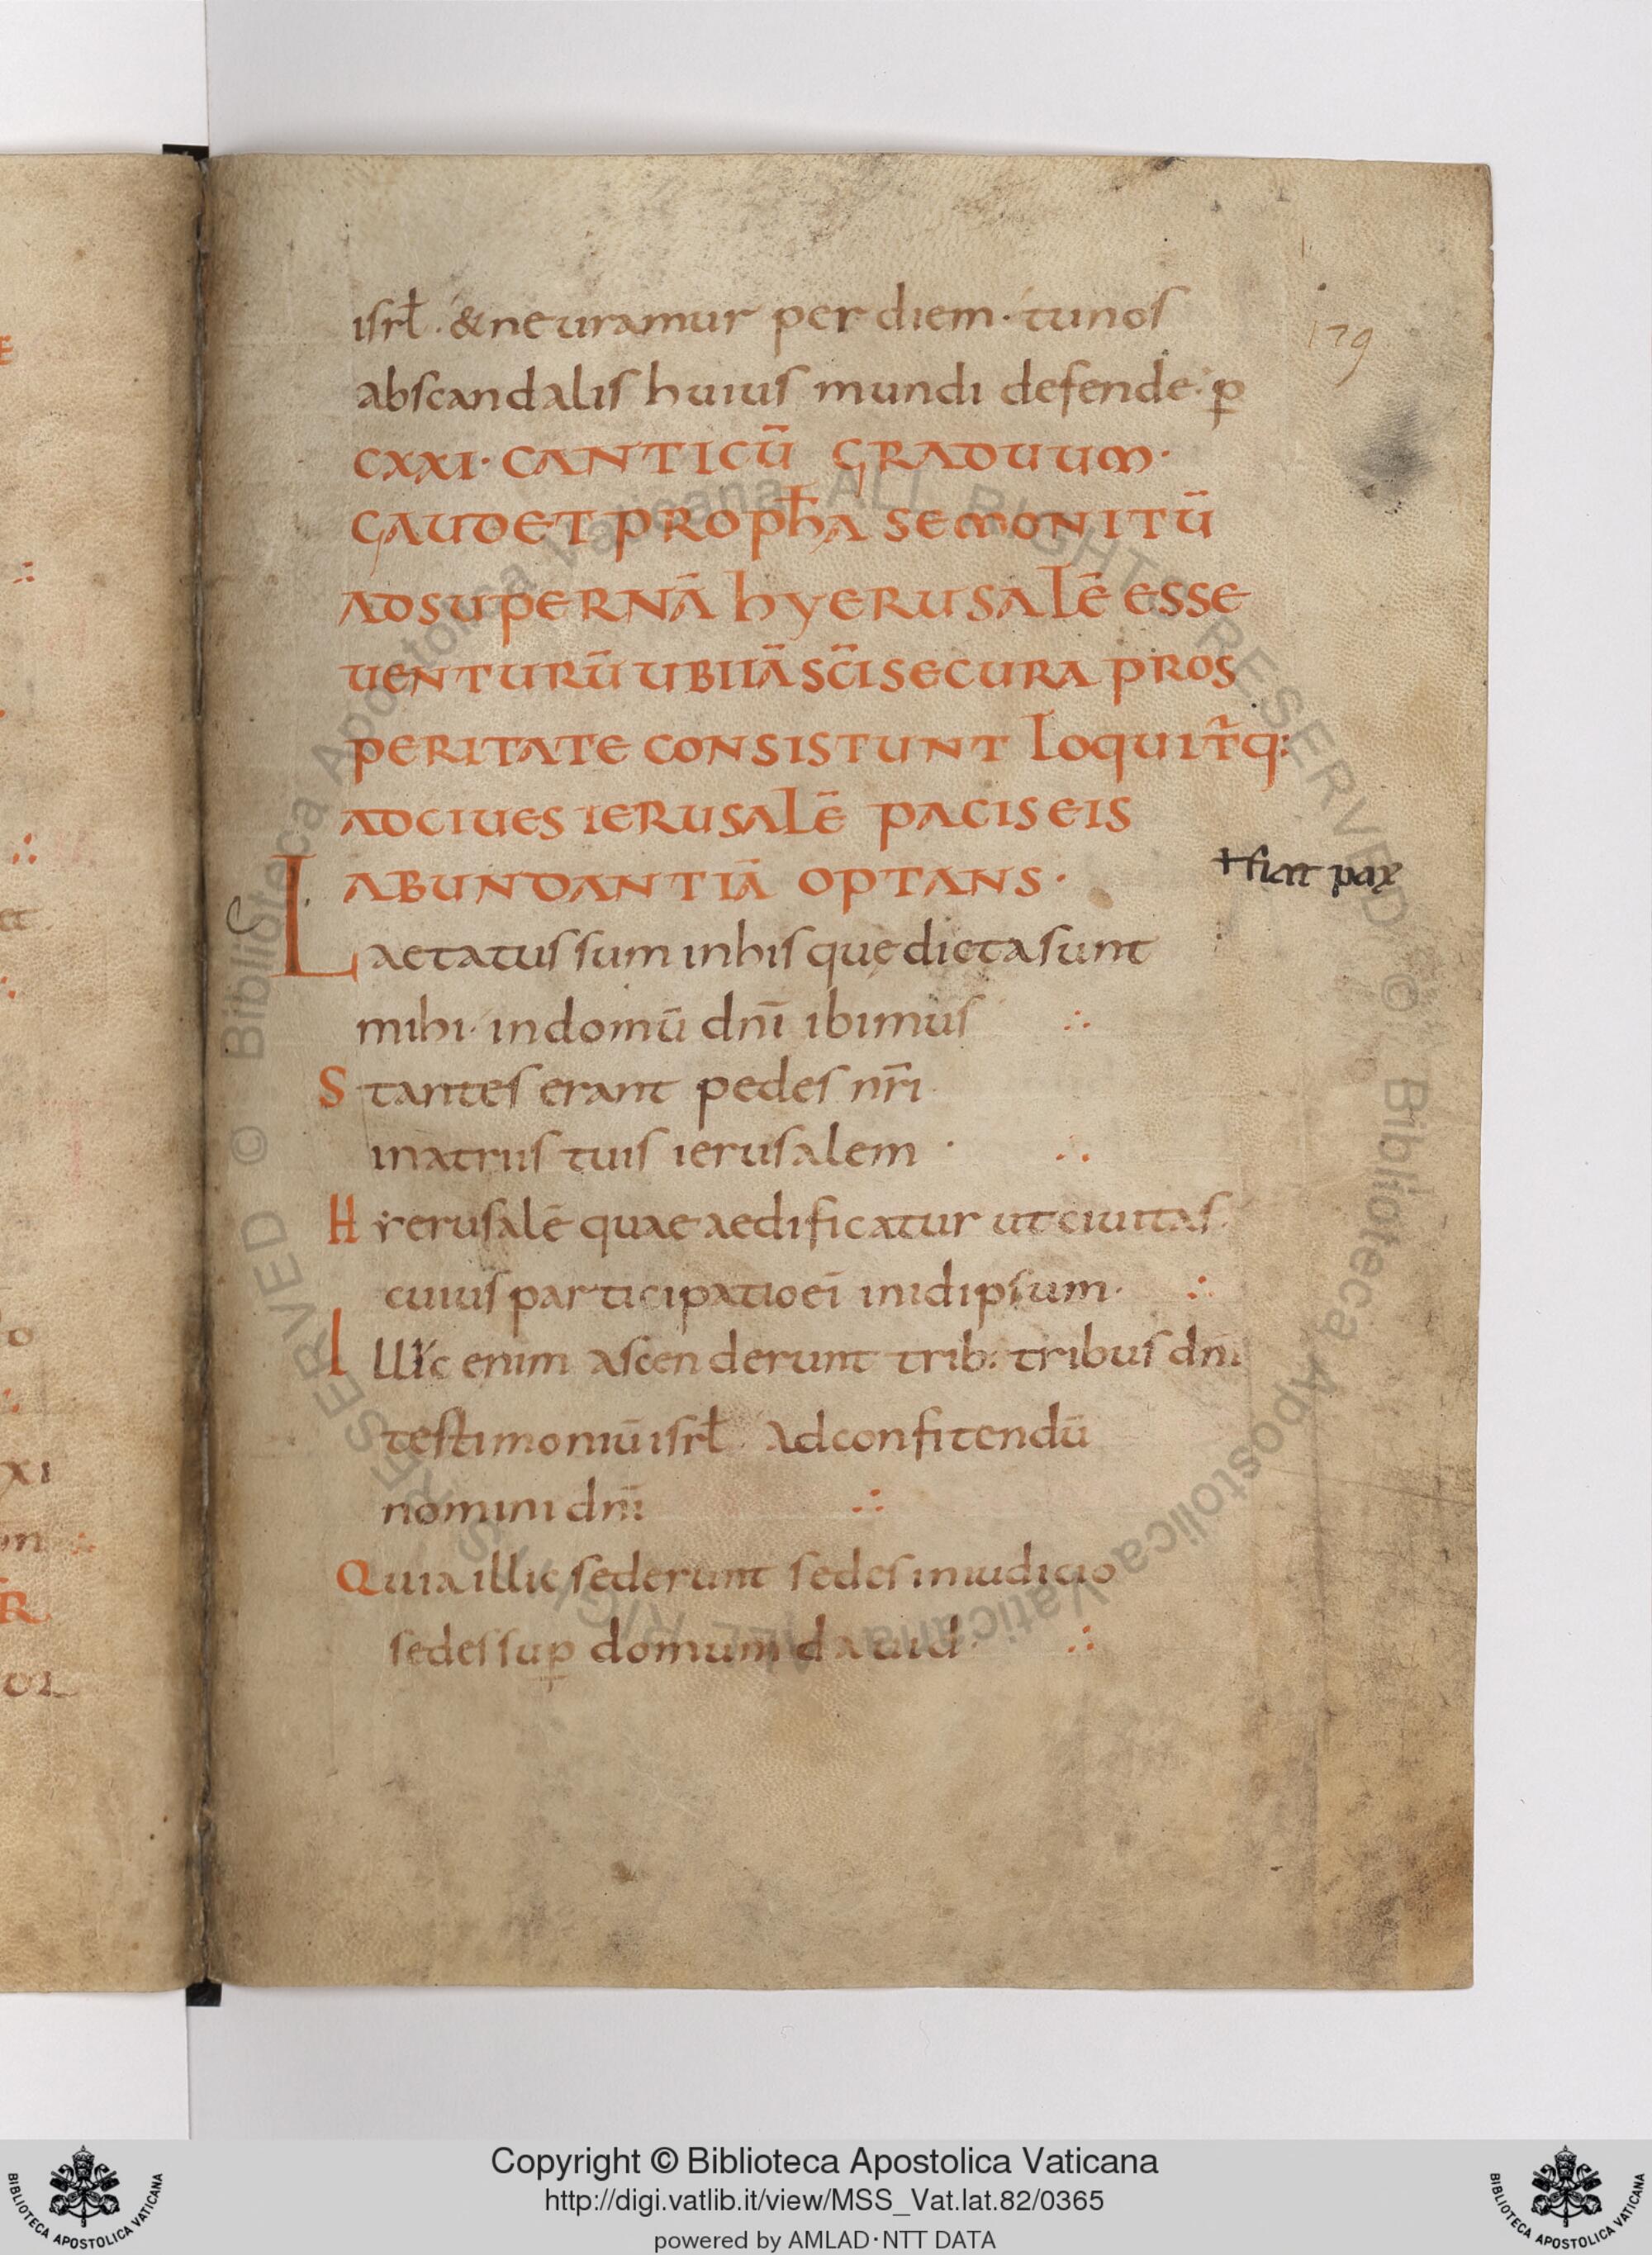 isrł · & ne uramur per diem · tu nos
179
ab scandalis huius mundi defende · p̱
CXXI · CANTICŪ GRADUUM ·
GAUDET PROPHA SE MONITŪ
AD SUPERNĀ HYERUSALĒ ESSE
UENTURŪ UBI IĀ SCI SECURA PROS
PERITATE CONSISTUNT LOQUITR̄ Q:
AD CIUES IERUSALĒ PACIS EIS
ABUNDANTIĀ OPTANS ·
fiat pax
Laetatus sum in his quę dicta sunt
mihi · in domū dnī ibimus ∴
Stantes erant pedes nr̄i
in atriis tuis ierusalem · ∴
Hyerusalē quae aedificatur ut ciuitas
cuius participatio ei in id ipsum · ∴
Illic enim ascenderunt trib: tribus dnī
testimoniū isrł · ad confitendū
nomini dnī ∴
Quia illic sederunt sedes in iudicio
sedes sup̱ domum dauid ∴
Copyright © Biblioteca Apostolica Vaticana
http://digi.vatlib.it/view/MSS_Vat.lat.82/0365
powered by AMLAD·NTT DATA
BIBLIOTECA APOSTOLICA VATICANA
BIBLIOTECA APOSTOLICA VATICANA